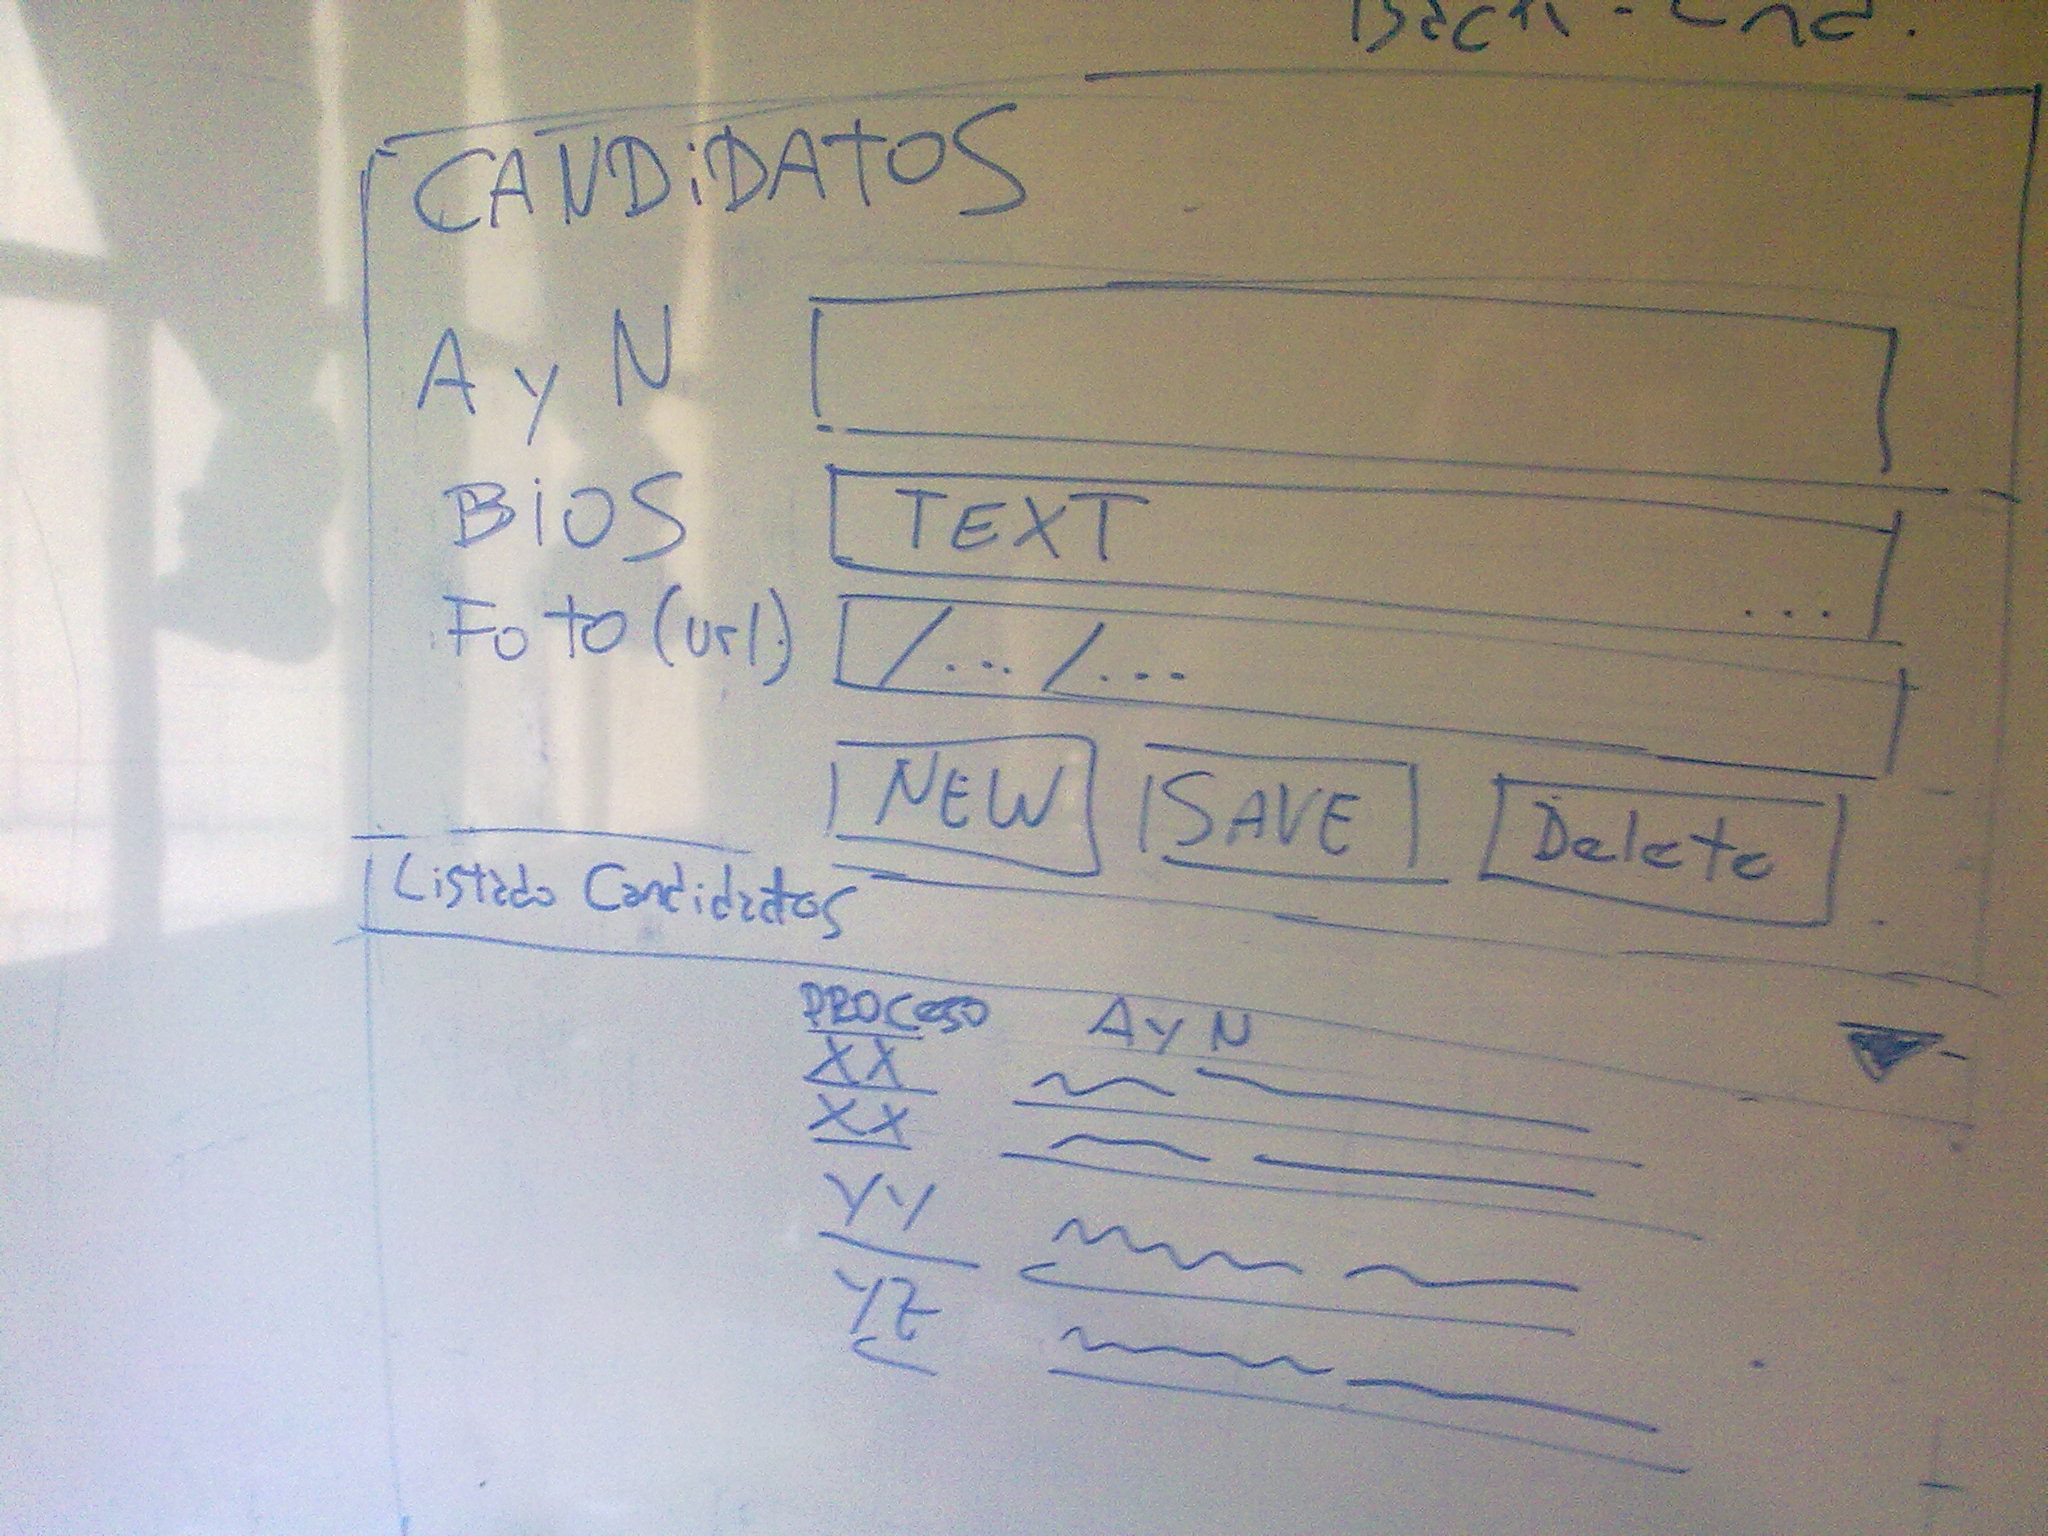 Back-End.
CANDiDATOS
A y N
BiOS TEXT ...
Foto (url) /... /...
NEW SAVE Delete
Listado Candidatos
PROCeso A y N
XX
XX
YY
YZ